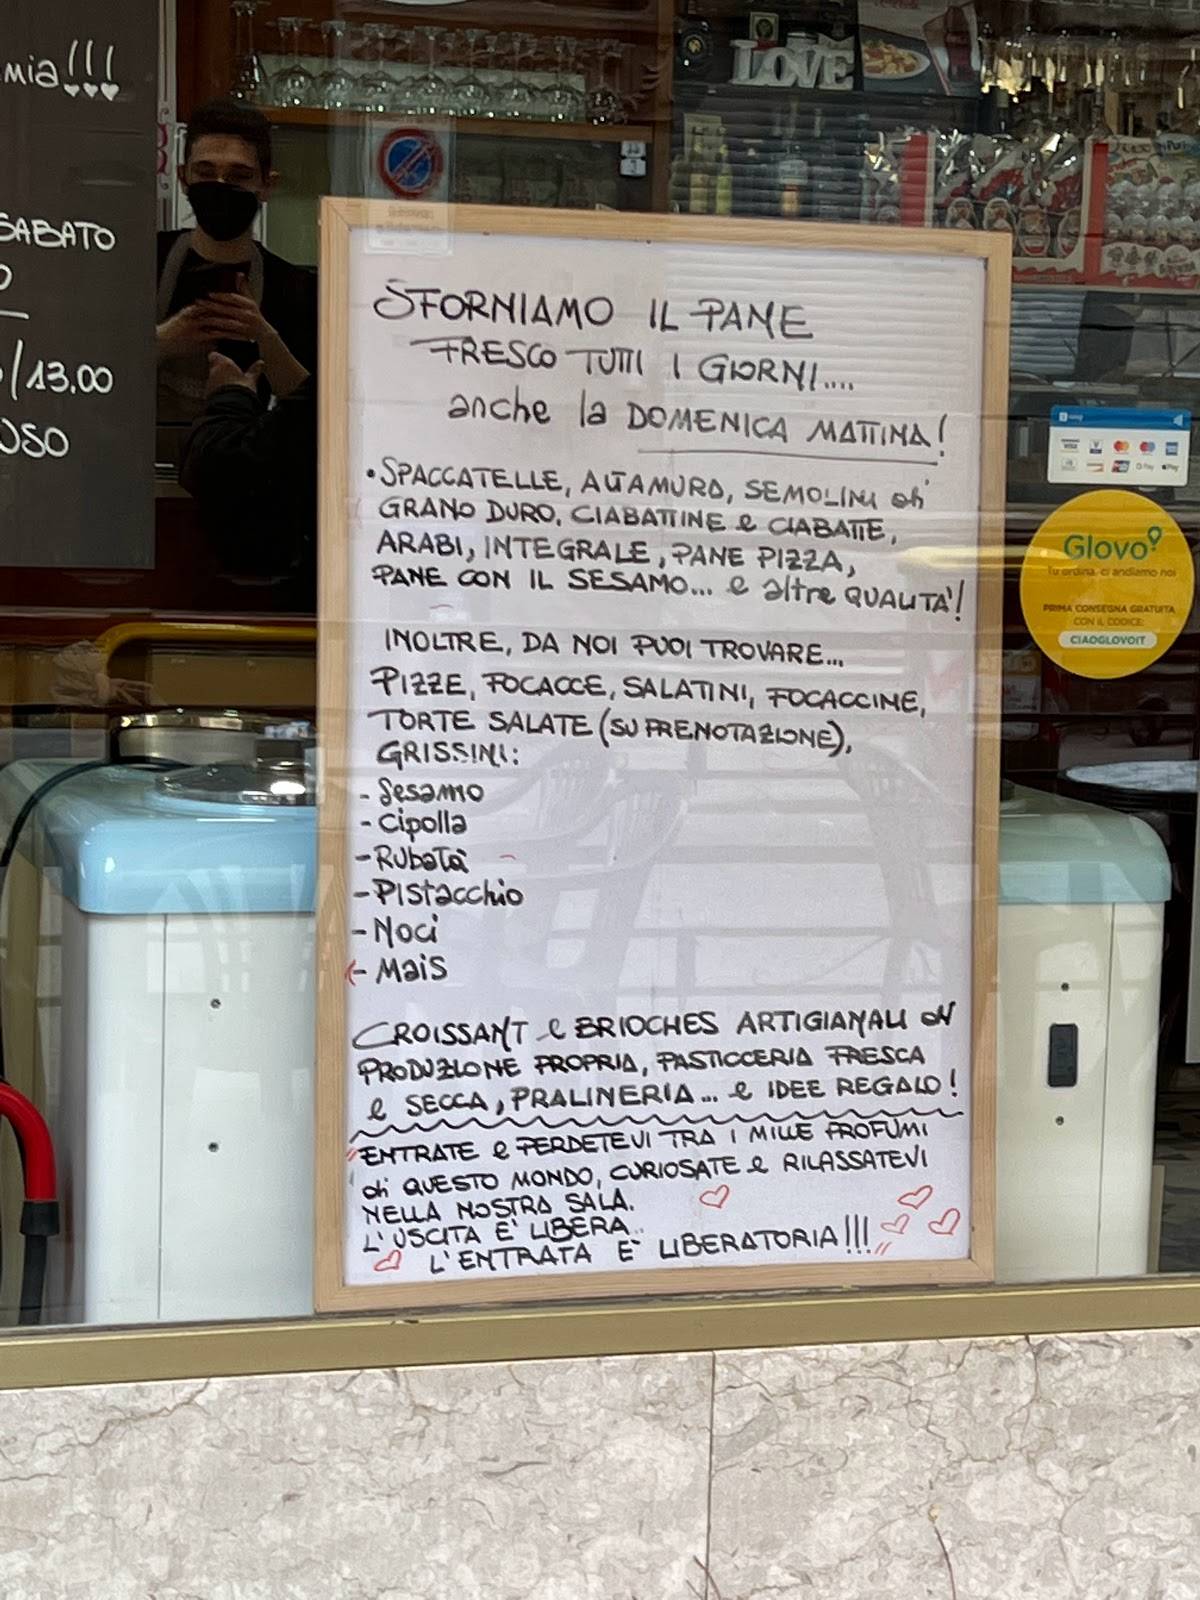 mia!!!
SABATO
/13.00
USO
LOVE
SFORNIAMO IL PANE
FRESCO TUTTI I GIORNI....
anche la DOMENICA MATTINA!
• SPACCATELLE, ALTAMURA, SEMOLINI di
GRANO DURO, CIABATTINE e CIABATTE,
ARABI, INTEGRALE, PANE PIZZA,
PANE CON IL SESAMO... e altre QUALITA'!
INOLTRE, DA NOI PUOI TROVARE...
PIZZE, FOCACCE, SALATINI, FOCACCINE,
TORTE SALATE (SU PRENOTAZIONE),
GRISSINI:
- Sesamo
- Cipolla
- Rubatà
- Pistacchio
- Noci
- Mais
CROISSANT e BRIOCHES ARTIGIANALI di
PRODUZIONE PROPRIA, PASTICCERIA FRESCA
e SECCA, PRALINERIA... e IDEE REGALO!
ENTRATE e PERDETEVI TRA I MILLE PROFUMI
di QUESTO MONDO, CURIOSATE e RILASSATEVI
NELLA NOSTRA SALA.
L'USCITA E' LIBERA..
L'ENTRATA E' LIBERATORIA!!!
Glovo
Tu ordina, ci andiamo noi
PRIMA CONSEGNA GRATUITA
CON IL CODICE:
CIAOGLOVOIT